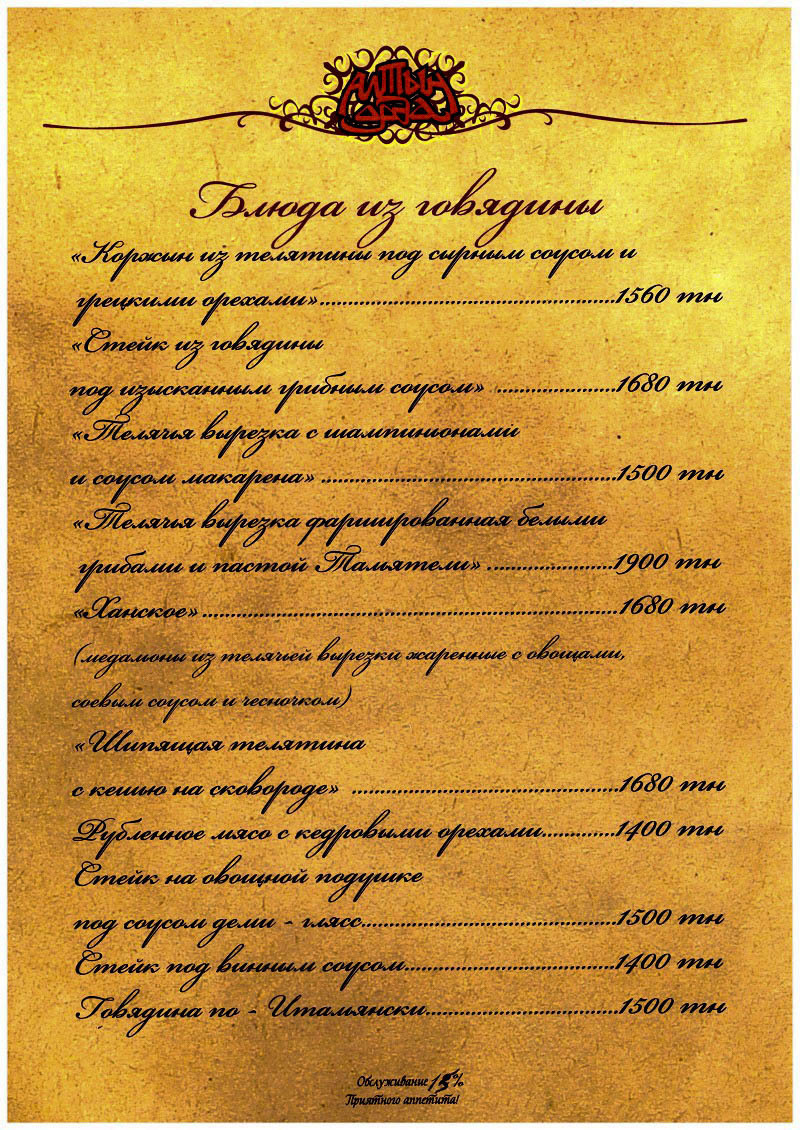 Алтын
Орда
Блюда из говядины
«Коржын из телятины под сырным соусом и
грецкими орехами».......................................................1560 тн
«Стейк из говядины
под изысканным грибным соусом» ......................1680 тн
«Телячья вырезка с шампиньонами
и соусом макарена» .......................................................1500 тн
«Телячья вырезка фаршированная белыми
грибами и пастой Тальятели» ........................1900 тн
«Ханское» ..............................................................................1680 тн
(медальоны из телячьей вырезки жаренные с овощами,
соевым соусом и чесночком)
«Шипящая телятина
с кешью на сковороде» ..................................................1680 тн
Рубленное мясо с кедровыми орехами..............1400 тн
Стейк на овощной подушке
под соусом деми - глясс................................................1500 тн
Стейк под винным соусом.......................................1400 тн
Говядина по - Итальянски....................................1500 тн
Обслуживание 15%
Приятного аппетита!